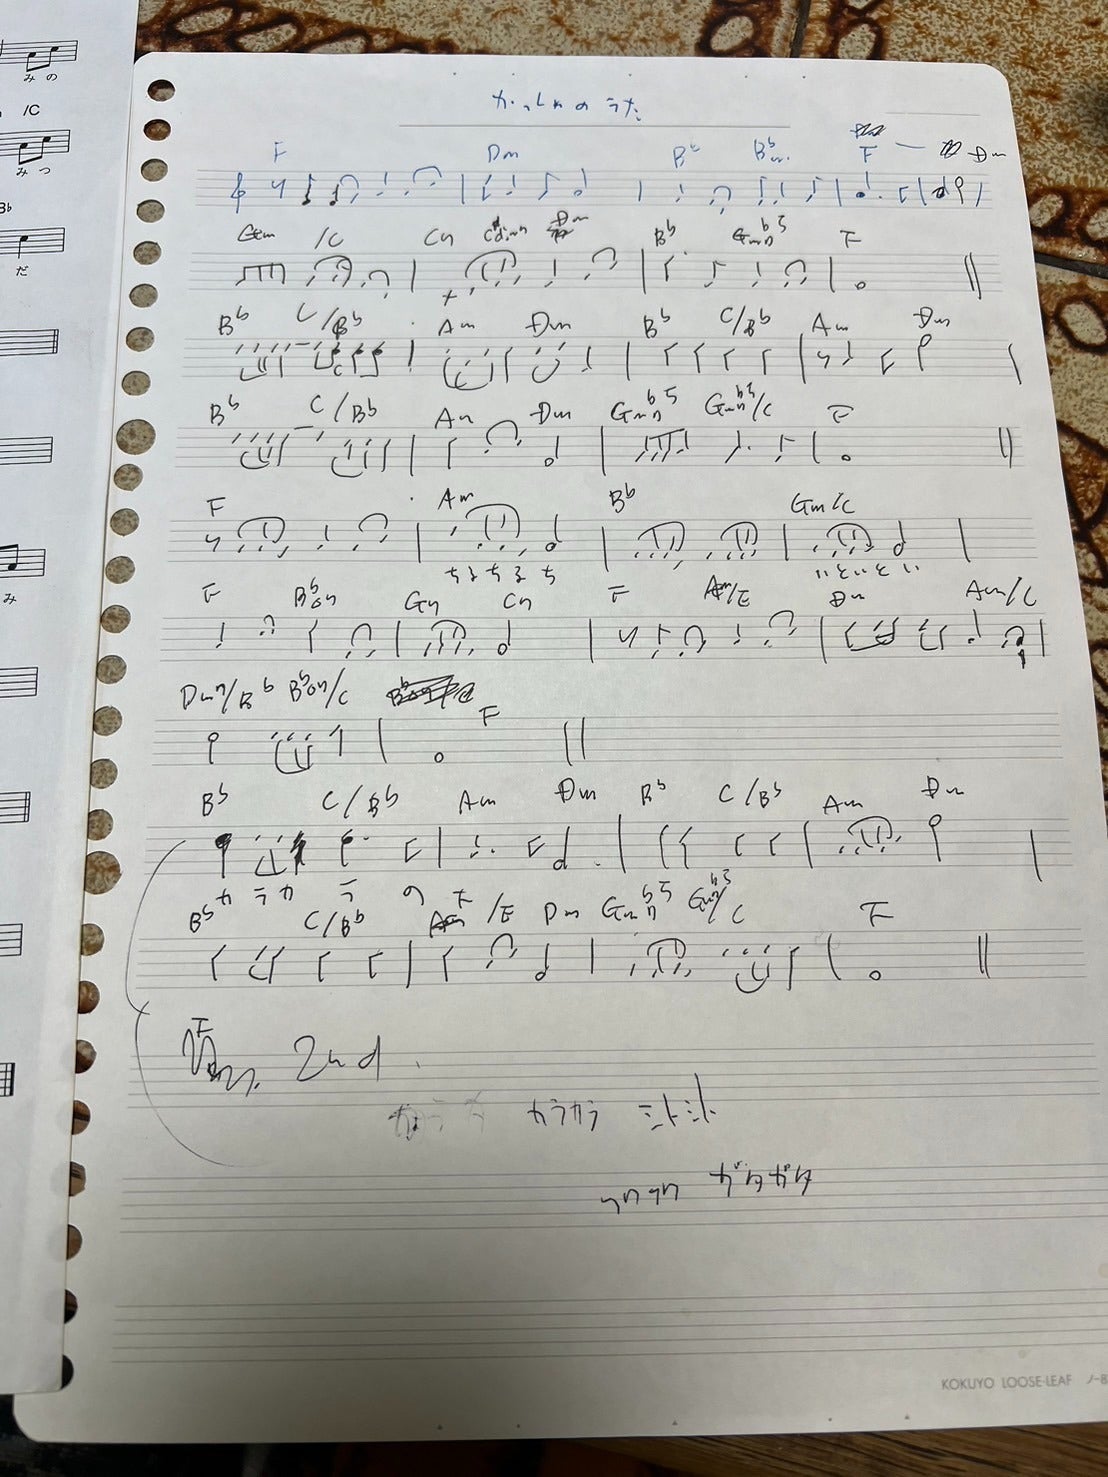 みの
/C
みつ
B♭
だ
み
のうた
F Dm B♭ B♭m F Dm
Gm /C C7 Cdim7 B♭ Gm7♭5 F
B♭ C/B♭ Am Dm B♭ C/B♭ Am Dm
B♭ C/B♭ Am Dm Gm7♭5 Gm7♭5/C F
F Am B♭ Gm/C
ちるちるち いといとい
F B♭on G7 C7 F Am/E Dm Am/C
Dm7/B♭ B♭on/C F
B♭ C/B♭ Am Dm B♭ C/B♭ Am Dm
カラカラの
B♭ C/B♭ F/E Dm Gm7♭5 Gm7♭5/C F
F
2nd.
カラカラ シトシト
ガタガタ
KOKUYO LOOSE-LEAF ノ-8